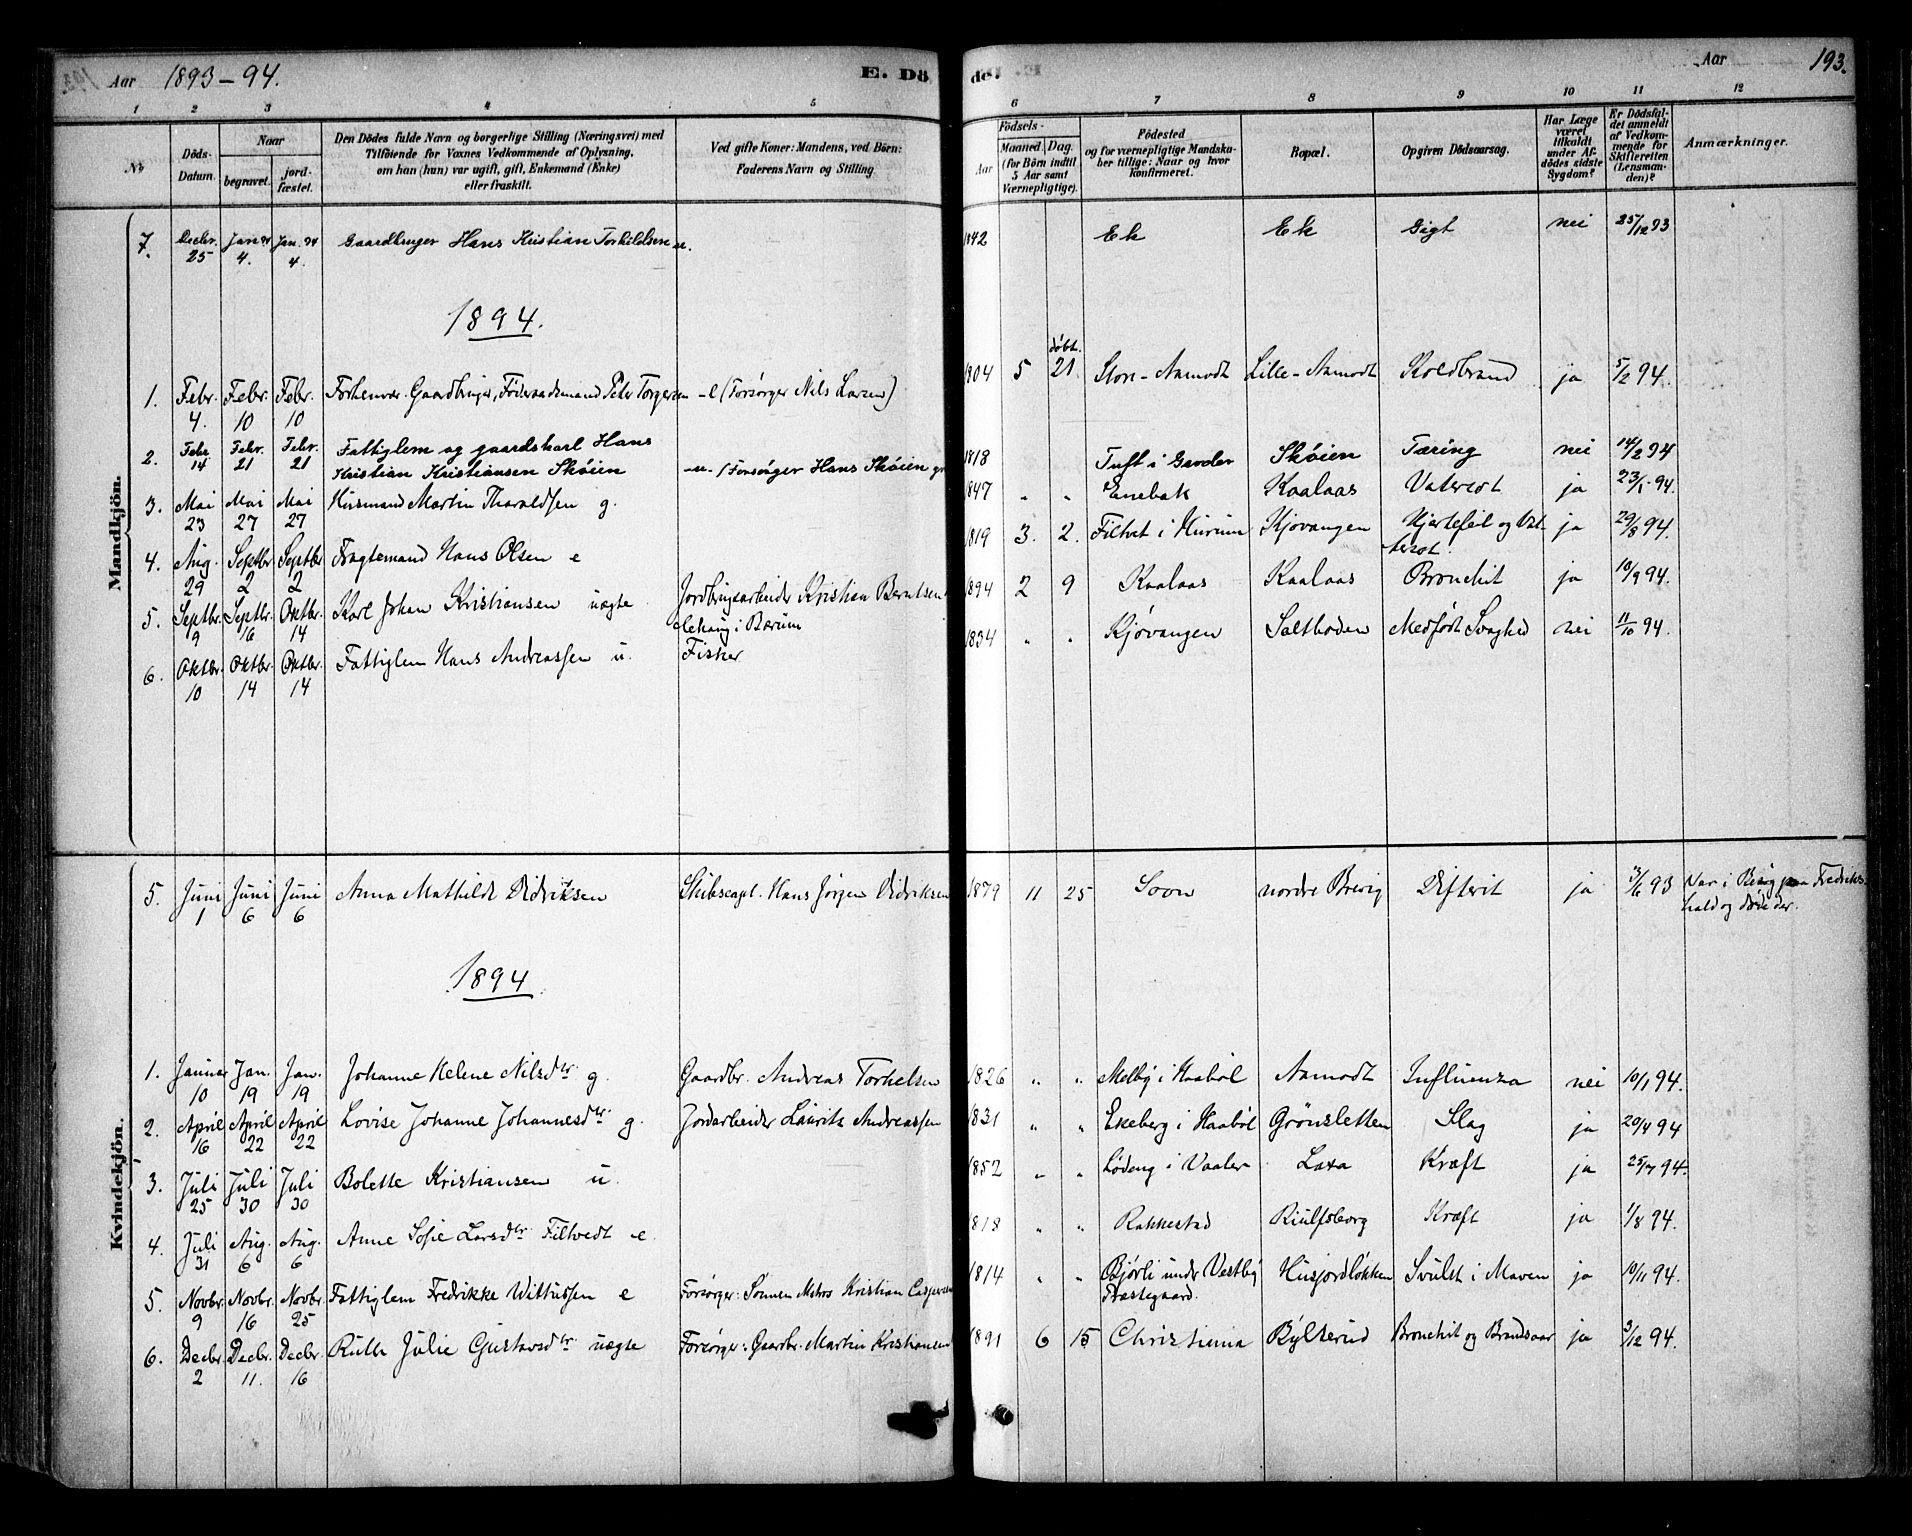 Aar 1893-94.
E. Dö
de.
Aar
193.
1 2 3 4 5
6 7 8 9 10 11 12
No
Döds-
Datum.
Naar
begravet.
jord-
fæstet.
Den Dödes fulde Navn og borgerlige Stilling (Næringsvei) med
Tilföiende for Voxnes Vedkommende af Oplysning,
om han (hun) var ugift, gift, Enkemand (Enke)
eller fraskilt.
Ved gifte Koner: Mandens, ved Börn:
Faderens Navn og Stilling
Födsels-
Aar
Maaned. Dag.
(for Börn indtil
5 Aar samt
Værnepligtige).
Födested
og for værnepligtige Mandska-
ber tillige: Naar og hvor
konfirmeret.
Bopæl.
Opgiven Dödsaarsag.
Har Læge
været
tilkaldt
under Af-
dödes sidste
Sygdom?
Er Dödsfal-
det anmeldt
af Vedkom-
mende for
Skifteretten
(Lensman-
den)?
Anmærkninger.
Mandkjön.
7. Decbr. 25 Jan 94 4. Jan. 94 4. Gaardbruger Hans Kristian Torkildsen u. 1842 Ek Ek Gigt nei 25/12 93
1894.
1. Febr. 4. Febr. 10 Febr. 10 Forhenvær. Gaardbruger, Föderaadsmand Peter Torgersen -e (Forsørger Nils Larsen) 1804 5 døbt. 21 Store-Aamodt Lille-Aamodt Koldbrand ja 5/2 94.
2. Febr. 14 Febr. 21 Febr. 21 Fattiglem og gaardskarl Hans
Kristian Kristiansen Skøien -u- (Forsørger Hans Skøien 1818 Tuft i Garder Skøien Tæring nei 14/2 94
3. Mai 23 Mai 27 Mai 27 Husmand Martin Tharaldsen g. 1847 " " Enebak Kaalaas Vatersot ja 23/5 94.
4. Aug. 29 Septbr 2 Septbr 2 Fragtemand Hans Olsen e 1819 3. 2. Filtvet i Hurum Kjøvangen Hjertefeil og Vat
tersot. ja 29/8 94.
5. Septbr. 9 Septbr. 16 Oktbr. 14 Karl Johan Kristiansen uægte Jordbrugsarbeider Kristian Berntsen
Hekaug i Bærum 1894 2 9 Kaalaas Kaalaas Bronchit ja 10/9 94.
6. Oktbr. 10 Oktbr. 14 Oktbr. 14 Fattiglem Hans Andreassen u. Fisker 1834 " " Kjøvangen Saltboden Medfødt Svaghed nei 11/10 94.
Kvindekjön.
5. Juni 1 Juni 6 Juni 6 Anna Mathilde Didriksen Skibscapt. Hans Jørgen Didriksen 1879 11 25 Soon nordre Brevig Difterit ja 3/6 93 Var i Besøg paa Fredriks-
hald og døde der.
1894
1. Januar 10 Jan. 19 Jan. 19 Johanne Helene Nilsdtr g. Gaardbr. Andreas Torkelsen 1826 " " Melby i Haabøl Aamodt Influenza nei 10/1 94.
2. April 16 April 22 April 22 Lovise Johanne Johannesdtr. g. Jordarbeider Laurits Andreassen 1831 " " Ekeberg i Haabøl Grønsletten Slag ja 20/4 94
3. Juli 25 Juli 30 Juli 30 Bolette Kristiansen u. 1852 " " Lødeng i Vaaler Laxa Kræft ja 25/7 94.
4. Juli 31 Aug. 6 Aug. 6 Anne Sofie Larsdtr Filtvedt e. 1818 " " Rakkestad Riulfsborg Kræft ja 1/8 94.
5. Novbr. 9 Novbr. 16 Novbr. 25 Fattiglem Fredrikke Wittussen e Forsørger: Sønnen Matros Kristian Caspersen 1814 " " Bjørli under Vestby
Præstegaard. Husjordløkken Svulst i Maven ja 10/11 94.
6. Decbr. 2 Decbr. 11. Decbr. 16 Ruth Julie Gustavsdtr uægte Forsørger: Gaardbr. Martin Kristiansen 1891 6 15 Christiania Rylterud Bronchit og Brandsaar ja 3/12 94.